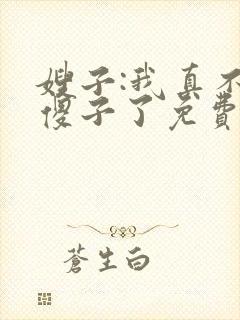 嫂子:我真不
傻子了免费
蒼生白